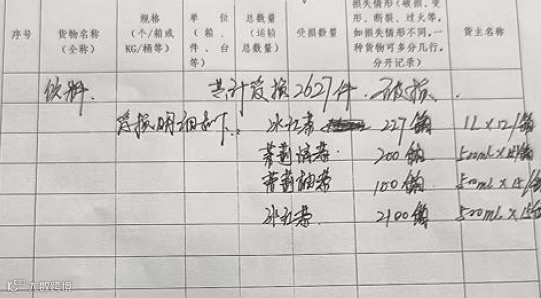 序号
货物名称
（全称）
规格
（个/箱或
KG/桶等）
单位
（箱、
件、台
等）
总数量
（运输
总数量）
受损数量
损失情形（破损、变
形、断裂、过火等，
如损失情形不同，一
种货物可多分几行，
分开记录）
货主名称
饮料. 共计受损2627件. 破损.
受损明细如下: 冰红茶 227箱 1L×12/箱
茉莉清茶 200箱 500ml×15/箱
茉莉柚茶 100箱 500ml×15/箱
冰红茶 2100箱 500ml×15/箱